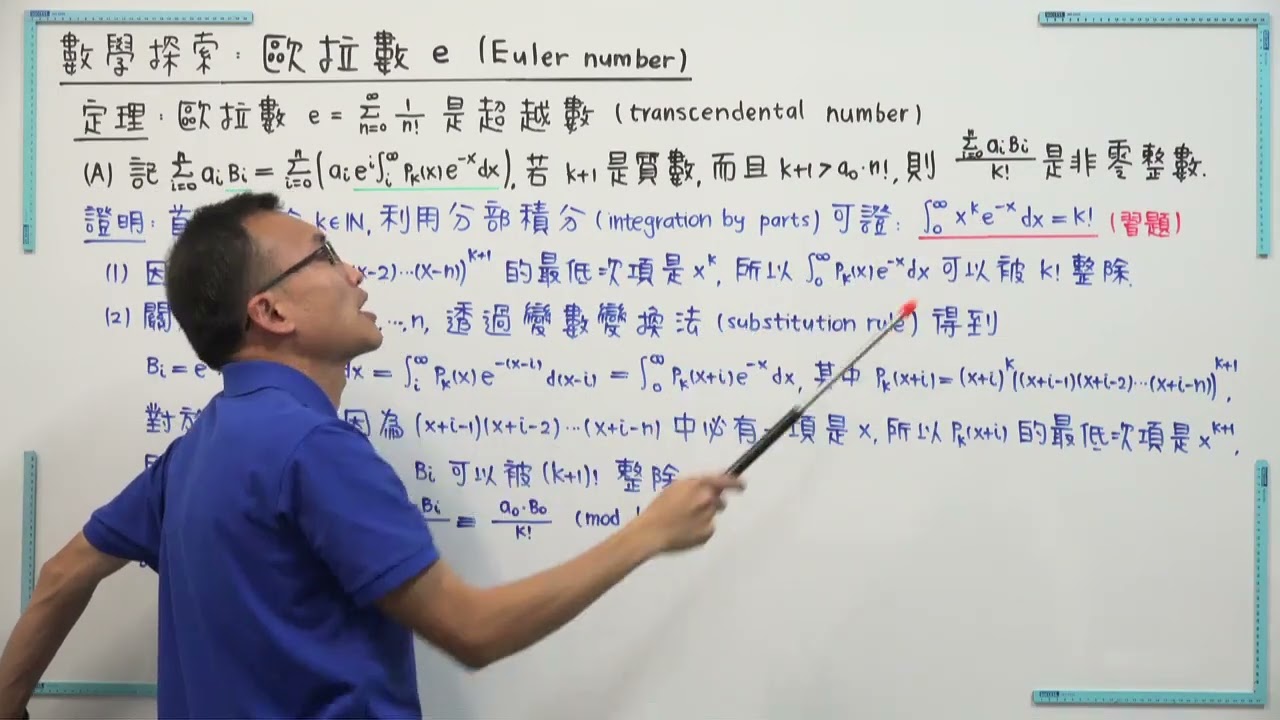 數學探索：歐拉數 e (Euler number)
定理：歐拉數 e = ∑_{n=0}^{∞} 1/n! 是超越數 (transcendental number)
(A) 記 ∑_{i=0}^{n} a_i B_i = ∑_{i=0}^{n} (a_i e^i ∫_i^∞ P_k(x) e^{-x} dx), 若 k+1 是質數, 而且 k+1 > a_0·n!, 則 ∑_{i=0}^{n} a_i B_i / k! 是非零整數.
證明：首 k∈ℕ, 利用分部積分 (integration by parts) 可證：∫_0^∞ x^k e^{-x} dx = k! (習題)
(1) 因 x-2)⋯(x-n))^{k+1} 的最低次項是 x^k, 所以 ∫_0^∞ P_k(x) e^{-x} dx 可以被 k! 整除.
(2) 關 ⋯,n, 透過變數變換法 (substitution rule) 得到
B_i = e dx = ∫_i^∞ P_k(x) e^{-(x-i)} d(x-i) = ∫_0^∞ P_k(x+i) e^{-x} dx, 其中 P_k(x+i) = (x+i)^k ((x+i-1)(x+i-2)⋯(x+i-n))^{k+1},
對於 因為 (x+i-1)(x+i-2)⋯(x+i-n) 中必有一項是 x, 所以 P_k(x+i) 的最低次項是 x^{k+1},
B_i 可以被 (k+1)! 整除
B_i ≡ a_0·B_0 / k! (mod